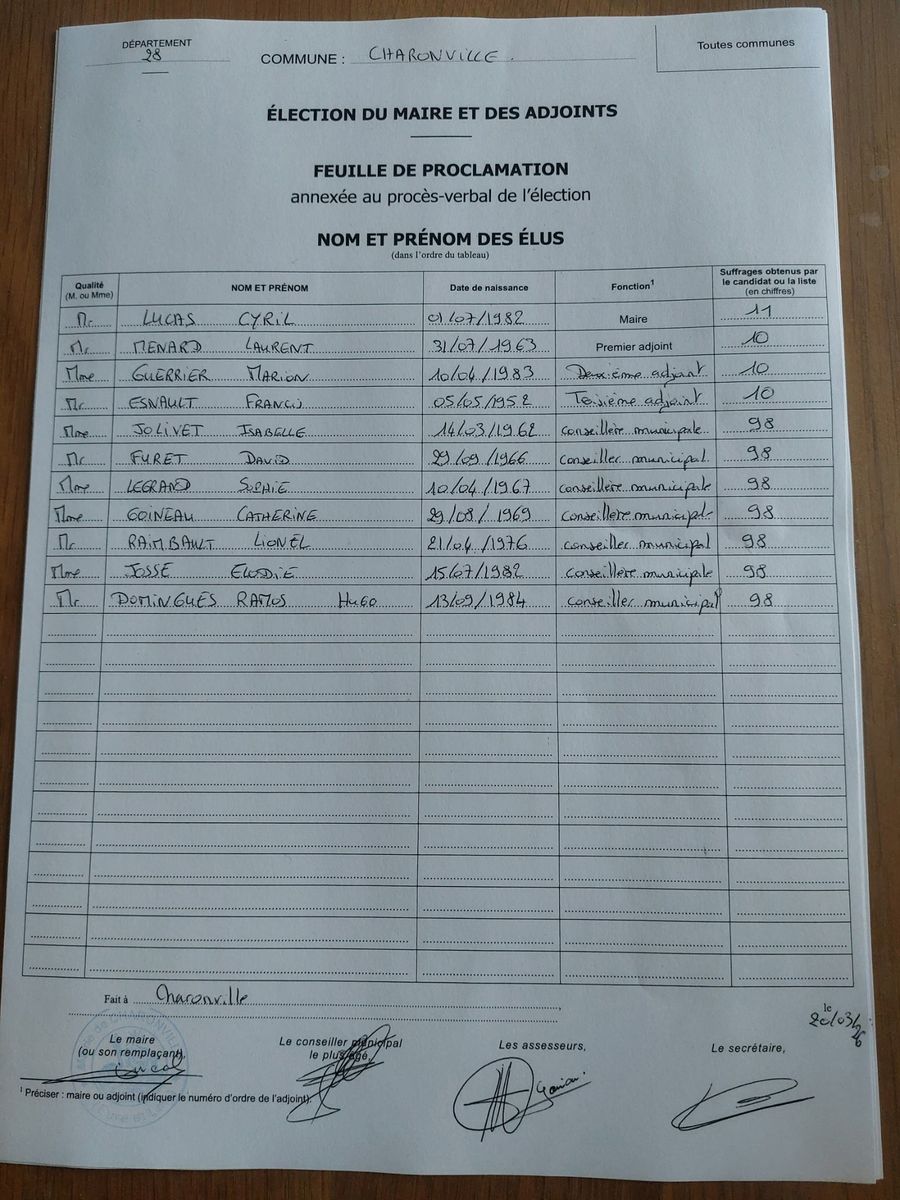 DÉPARTEMENT
28
COMMUNE : CHARONVILLE.
Toutes communes
ÉLECTION DU MAIRE ET DES ADJOINTS
FEUILLE DE PROCLAMATION
annexée au procès-verbal de l'élection
NOM ET PRÉNOM DES ÉLUS
(dans l'ordre du tableau)
Qualité (M. ou Mme) NOM ET PRÉNOM Date de naissance Fonction1 Suffrages obtenus par le candidat ou la liste (en chiffres)
Mr LUCAS CYRIL 01/07/1982 Maire 11
Mr MENARD LAURENT 31/07/1963 Premier adjoint 10
Mme GUERRIER MARION 10/04/1983 Deuxième adjoint 10
Mr ESNAULT FRANCIS 05/05/1952 Toisième adjoint 10
Mme JOLIVET ISABELLE 14/03/1962 conseillère municipale 98
Mr FURET DAVID 29/09/1966 conseiller municipal 98
Mme LEGRAND SOPHIE 10/04/1967 conseillère municipale 98
Mme GOINEAU CATHERINE 29/08/1969 conseillère municipale 98
Mr RAIMBAULT LIONEL 21/04/1976 conseiller municipal 98
Mme JOSSE ELODIE 15/07/1982 conseillère municipale 98
Mr DOMINGUES RAMOS HUGO 13/09/1984 conseiller municipal 98
Fait à Charonville
le 20/03/26
Le maire
(ou son remplaçant),
Le conseiller municipal
le plus âgé,
Les assesseurs,
Le secrétaire,
1 Préciser : maire ou adjoint (indiquer le numéro d'ordre de l'adjoint).